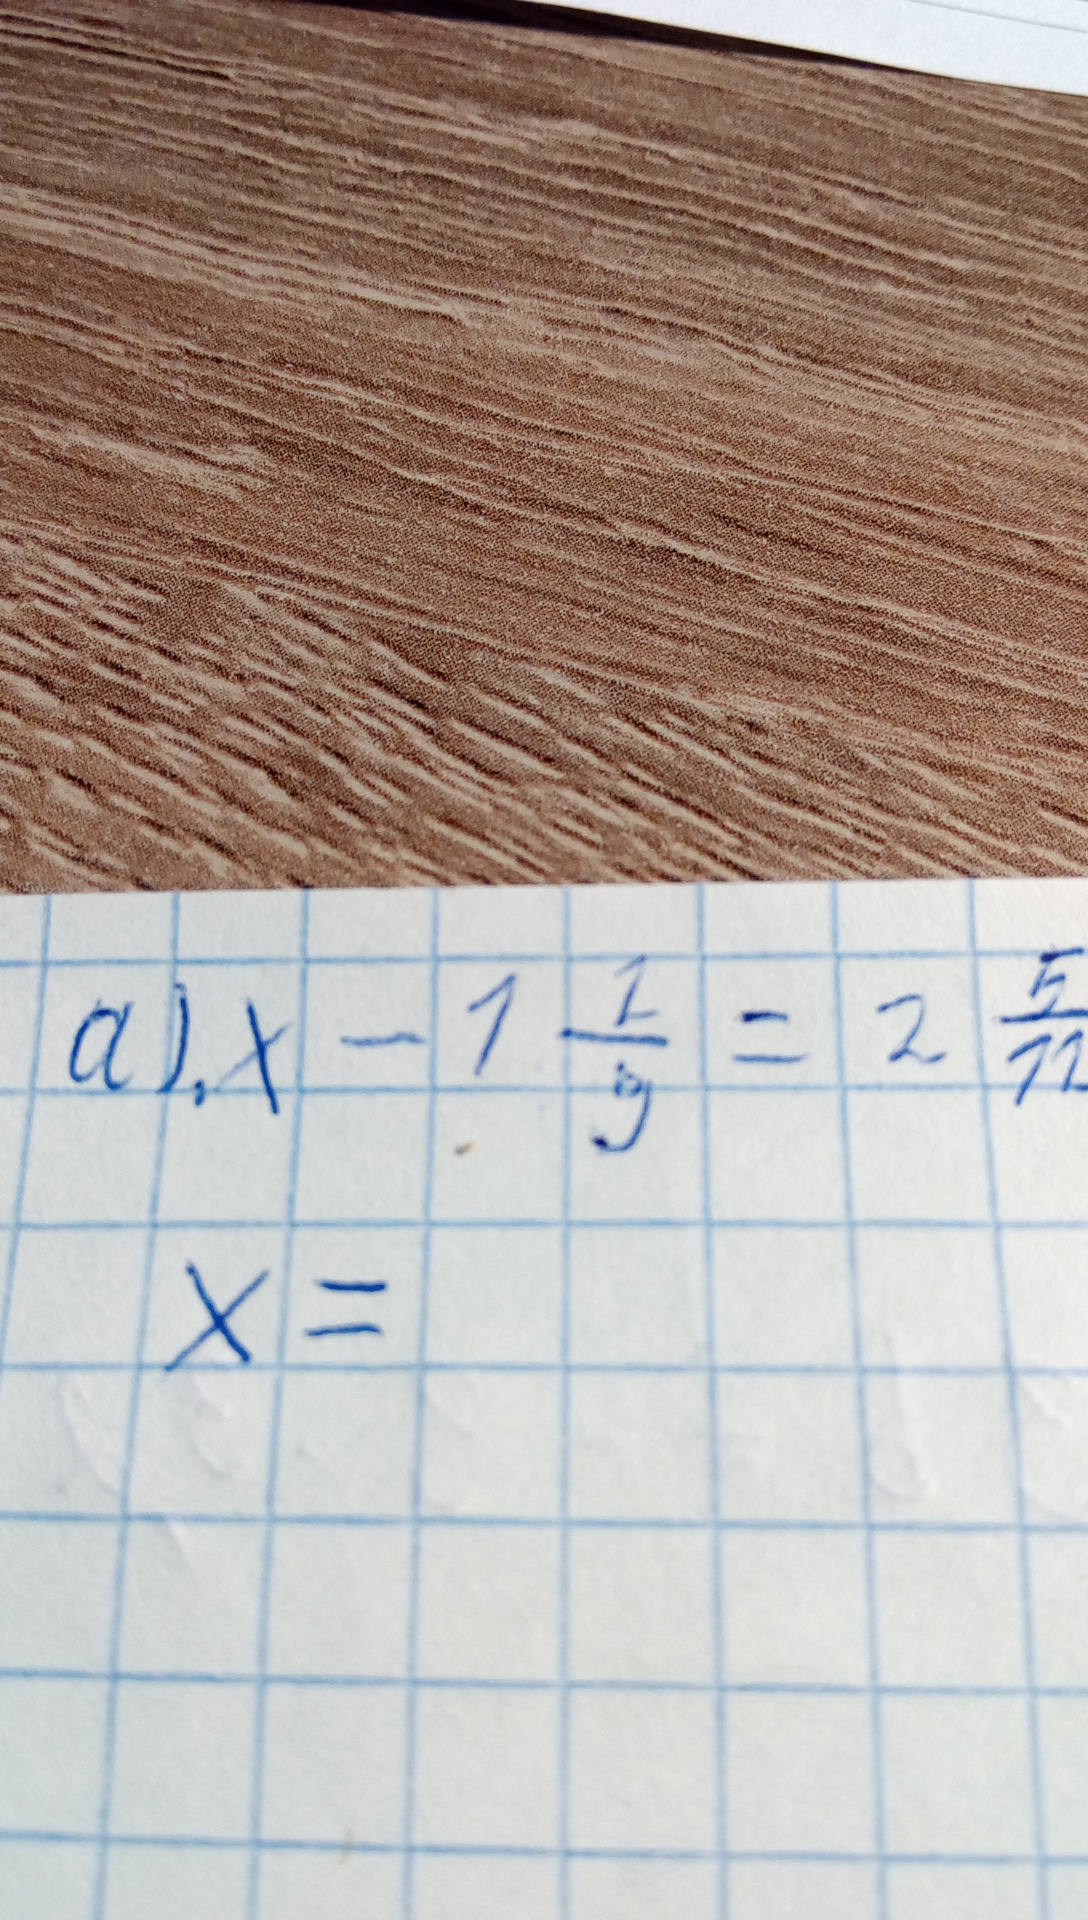 а). x - 1 1/9 = 2 5/12
x =